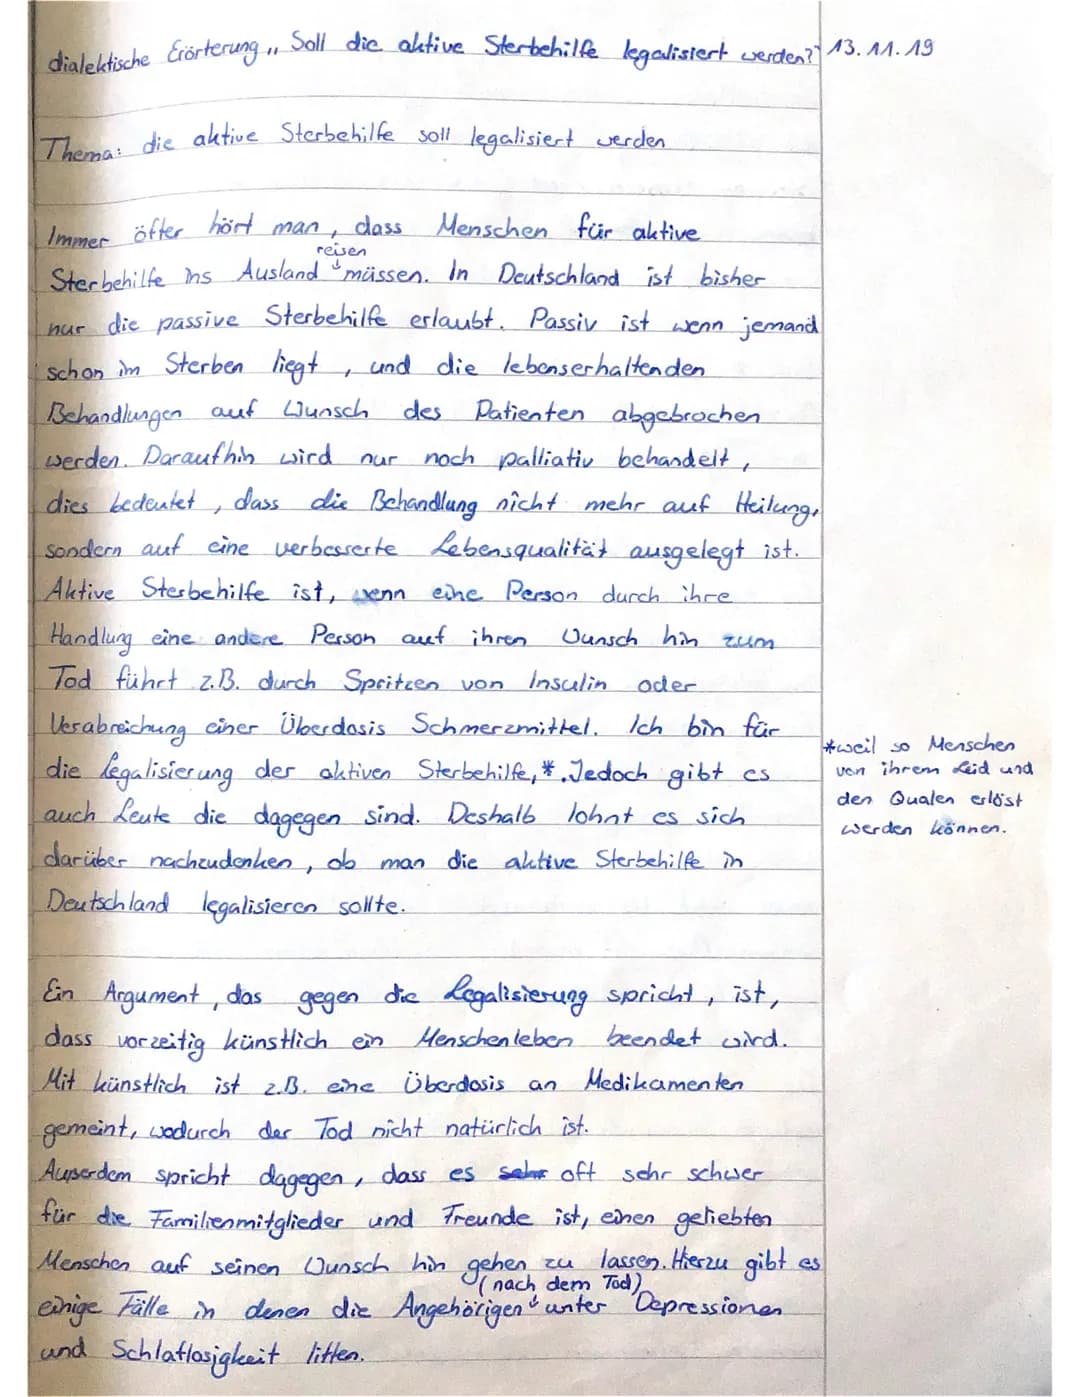 dialektische Erörterung „ Soll die aktive Sterbehilfe legalisiert werden?" 13.11.19
Thema: die aktive Sterbehilfe soll legalisiert werden
Immer öfter hört man, dass Menschen für aktive
reisen
Sterbehilfe ins Ausland müssen. In Deutschland ist bisher
nur die passive Sterbehilfe erlaubt. Passiv ist wenn jemand
schon im Sterben liegt, und die lebenserhaltenden
Behandlungen auf Wunsch des Patienten abgebrochen
werden. Daraufhin wird nur noch palliativ behandelt,
dies bedeutet, dass die Behandlung nicht mehr auf Heilung,
sondern auf eine verbesserte Lebensqualität ausgelegt ist.
Aktive Sterbehilfe ist, wenn eine Person durch ihre
Handlung eine andere Person auf ihren Wunsch hin zum
Tod führt z.B. durch Spritzen von Insulin oder
Verabreichung einer Überdosis Schmerzmittel. Ich bin für
die Legalisierung der aktiven Sterbehilfe,*. Jedoch gibt es
*weil so Menschen
von ihrem Leid und
den Qualen erlöst
werden können.
auch Leute die dagegen sind. Deshalb lohnt es sich
darüber nachzudenken, ob man die aktive Sterbehilfe in
Deutschland legalisieren sollte.
Ein Argument, das gegen die Legalisierung spricht, ist,
dass vorzeitig künstlich ein Menschenleben beendet wird.
Mit künstlich ist z.B. eine Überdosis an Medikamenten
gemeint, wodurch der Tod nicht natürlich ist.
Außerdem spricht dagegen, dass es sehr oft sehr schwer
für die Familienmitglieder und Freunde ist, einen geliebten
Menschen auf seinen Wunsch hin gehen zu lassen. Hierzu gibt es
(nach dem Tod)
einige Fälle in denen die Angehörigen unter Depressionen
und Schlaflosigkeit litten.